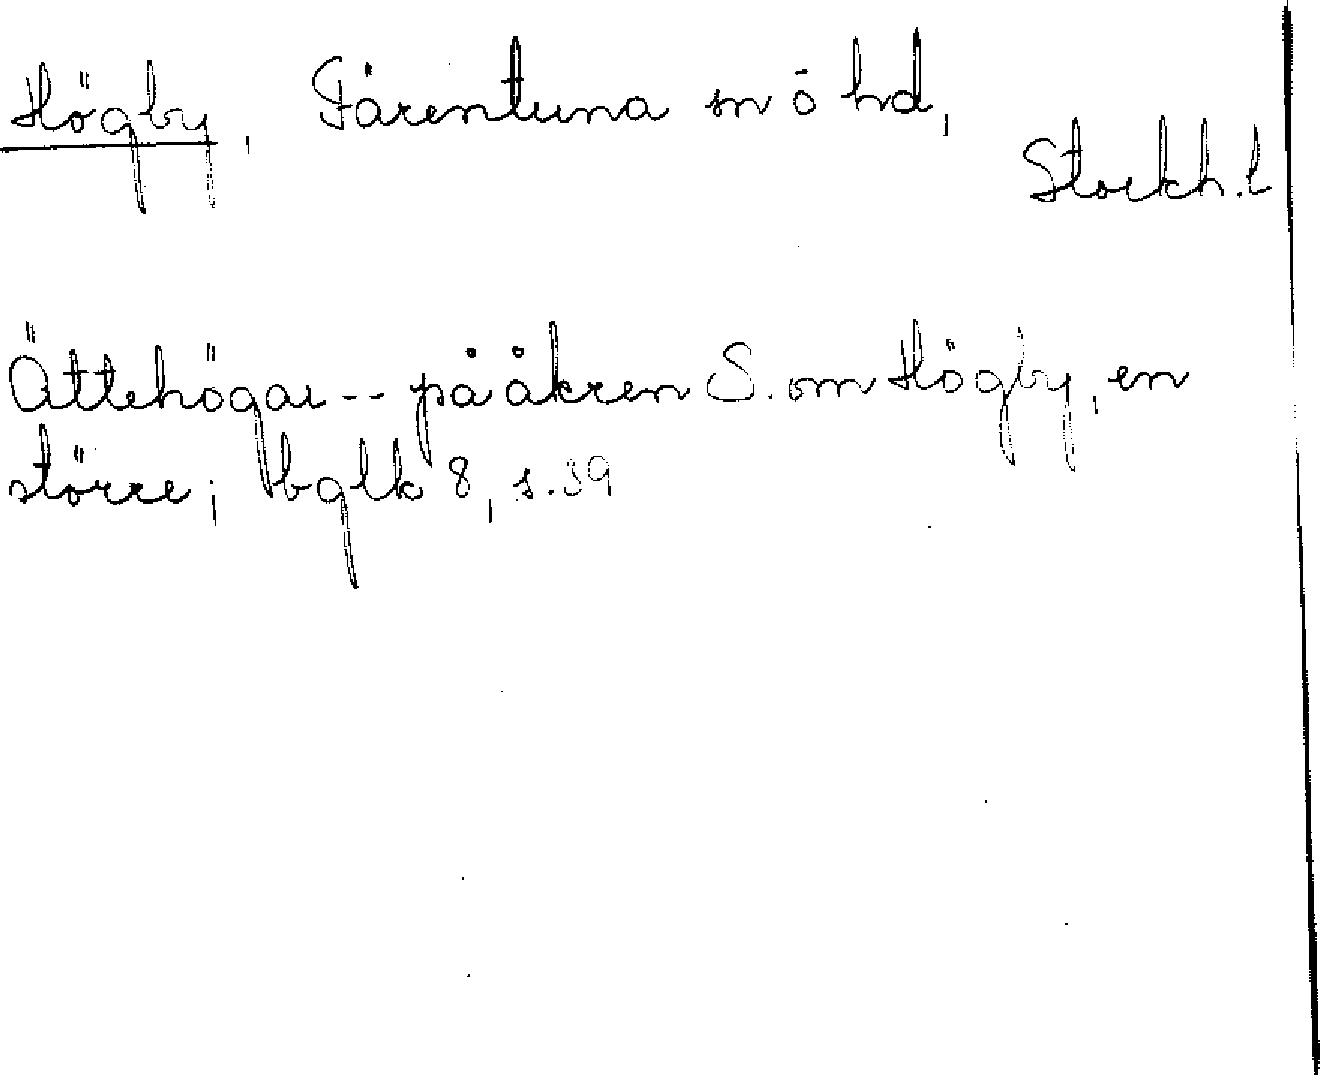 Högby, Färentuna sn ō hd,
Stockh. l
Ättehögar -- på åkren S. om Högby, en
större; bglk 8, s. 39